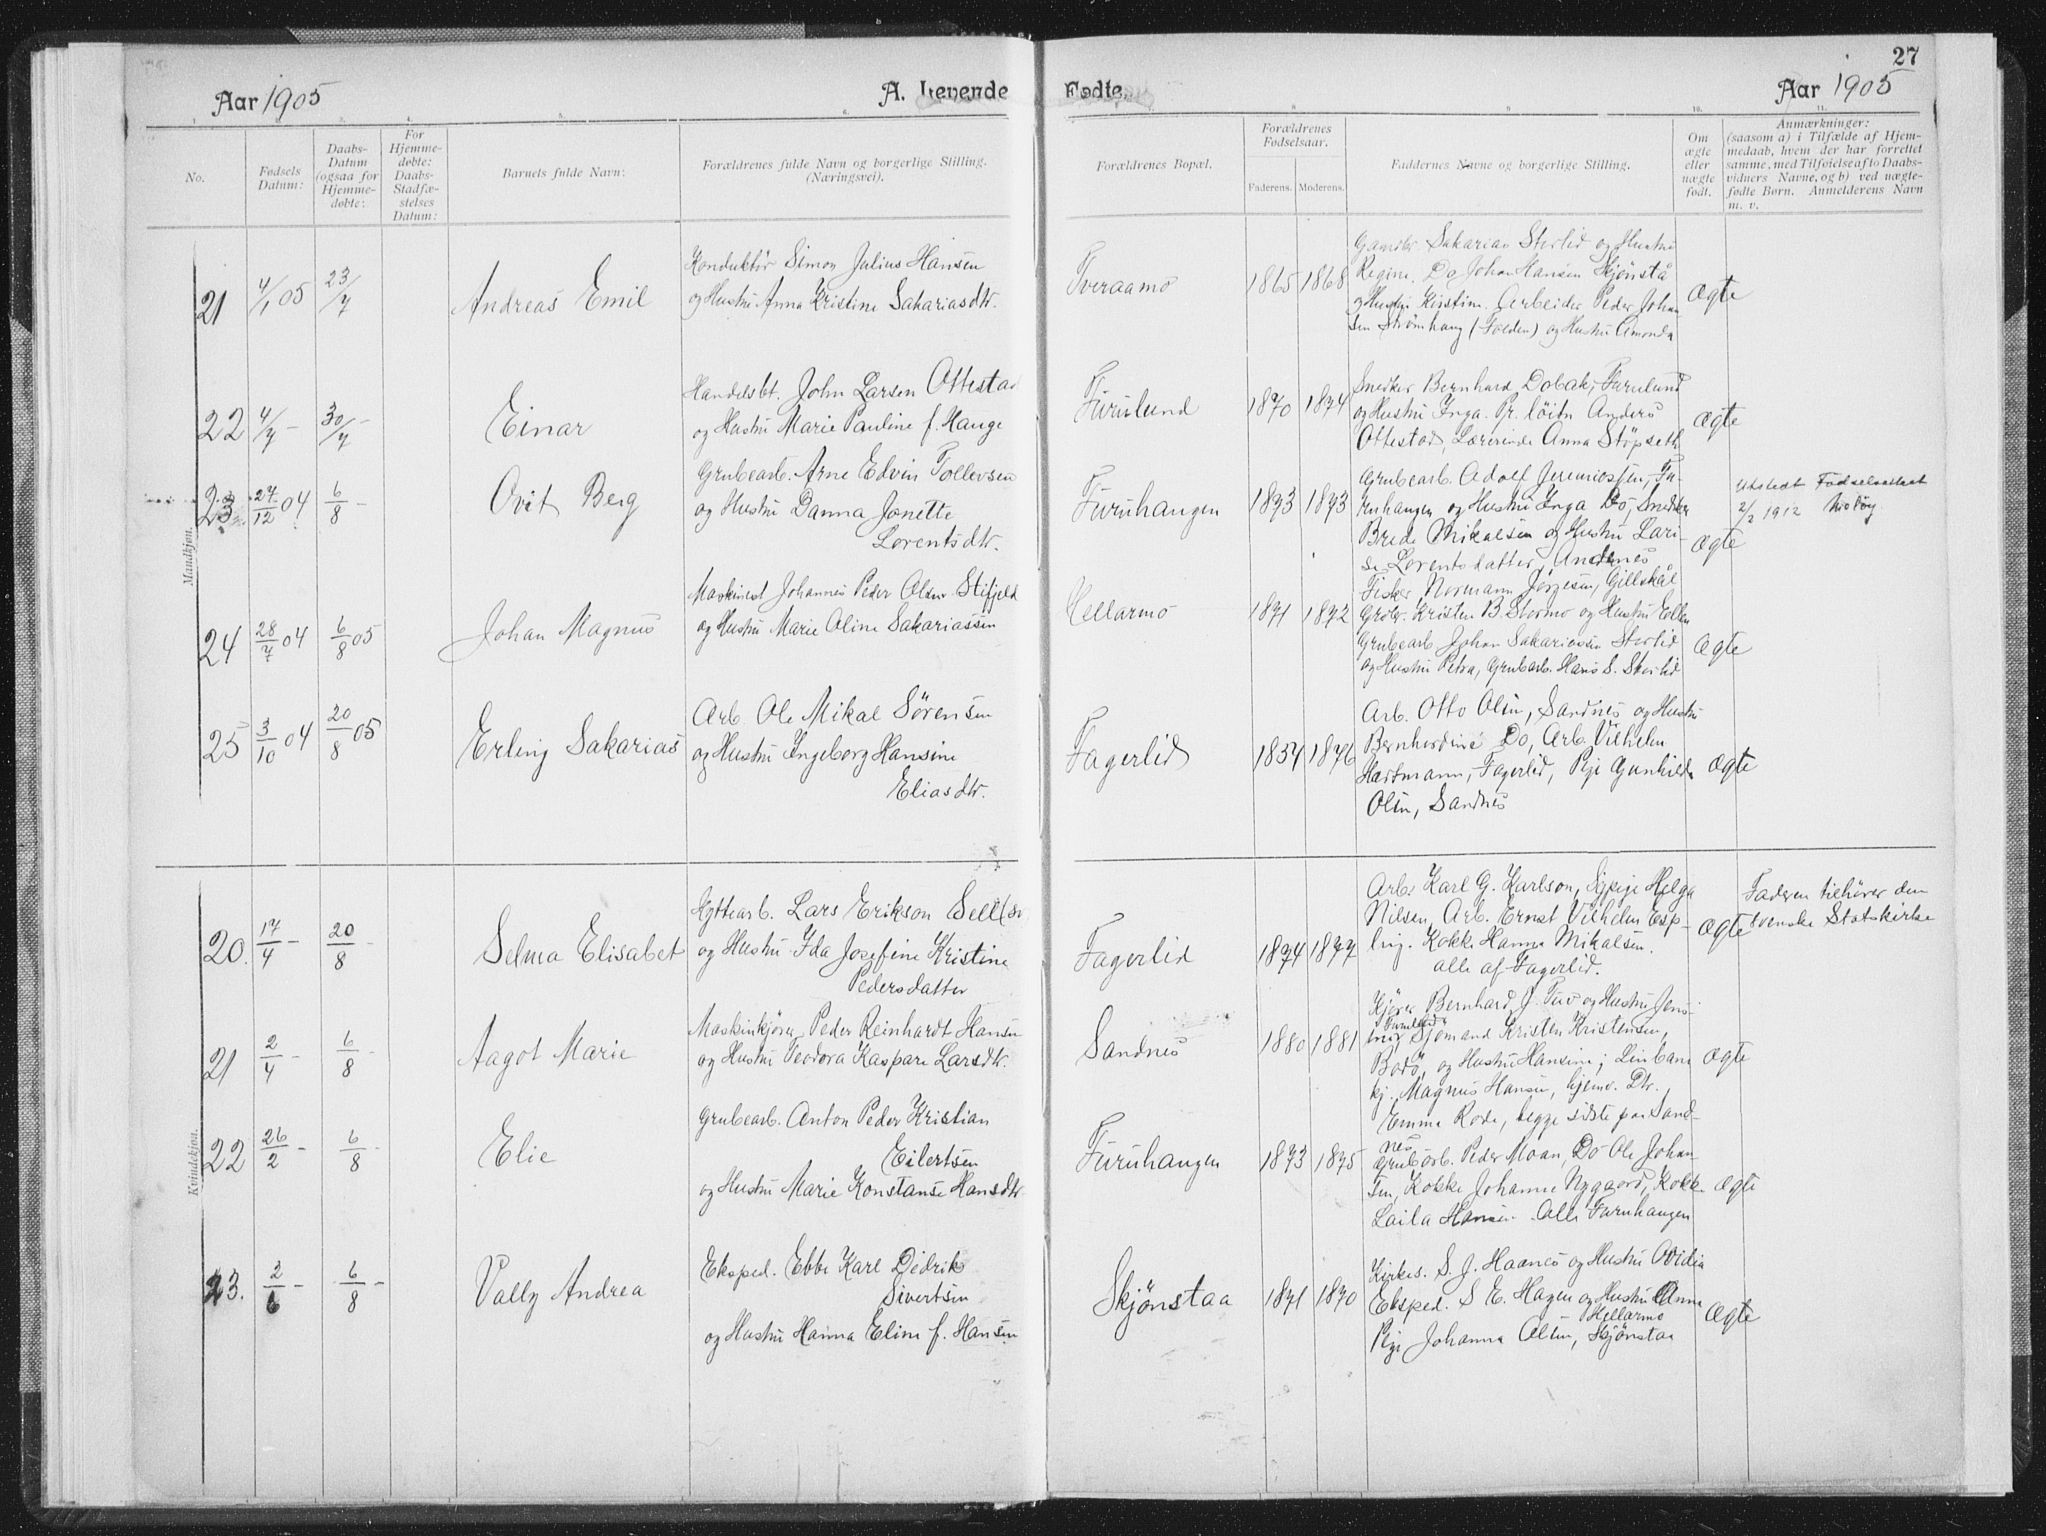 Aar 1905
A. Levende
Fødte.
27
Aar 1905
No.
Fødsels Datum:
Daabs-Datum (ogsaa for Hjemmedøbte:
For Hjemmedøbte: Daabs-Stadfæstelses Datum:
Barnets fulde Navn:
Forældrenes fulde Navn og borgerlige Stilling. (Næringsvei).
Forældrenes Bopæl.
Forældrenes Fødselsaar.
Faderens. Moderens.
Faddernes Navne og borgerlige Stilling.
Om ægte eller uægte født.
Anmærkninger:
(saasom a) i Tilfælde af Hjem-
medaab, hvem der har forrettet
samme, med Tilføielse af to Daabs-
vidners Navne, og b) ved uægte-
fødte Børn. Anmelderens Navn
m. v.
Mandkjøn.
21 4/1 05 23/7 Andreas Emil
Konduktør Simon Julius Hansen
og Hustru Anna Kristine Sakariasdtr.
Tveraamo 1865 1868
Gaardbr. Sakarias Storlid og Hustru
Regine. Do Johan Hansen Skjönstå
og Hustru Kirstine. Arbeider Peder Johan
sen Strømhaug (Folden) og Hustru Amonda
Ægte
22 4/4 - 30/7 - Einar
Handelsbt. John Larsen Ottestad
og Hustru Marie Pauline f. Hauge
Furulund 1870 1874
Snedker Bernhard Dobak, Furulund
og Hustru Inga. Pr. löitn Anders
Ottestad, Lærerinde Anna Stöpseth
Ægte
23 27/12 04 6/8 - Ovit Berg
Grubearb. Arne Edvin Tollevsen
og Hustru Danna Jonette
Lorentsdtr.
Furuhaugen 1873 1873
Grubearb. Adolf Jeremiassen, Fu-
ruhaugen og Hustru Inga Do, Snedker
Brede Mikalsen og Hustru Lari-
se Lorentsdatter, Andenes
Ægte
Utstedt Fødselsattest
2/2 1912
24 28/7 04 6/8 05 Johan Magnus
Maskinist Johannes Peder Olsen Stifjeld
og Hustru Marie Aline Sakariassen
Hellarmo 1871 1872
Fisker Normann Jörgesen, Gillskål
Grdbr. Kristen B. Stormo og Hustru Ellen
Grubearb Johan Sakariassen Storlid
og Hustru Petra, Grubarb. Hans S. Storlid
Ægte
25 3/10 04 20/8 05 Erling Sakarias
Arb. Ole Mikal Sörensen
og Hustru Ingeborg Hansine
Eliasdtr.
Fagerlid 1854 1876
Arb. Otto Olsen, Sandnes og Hustru
Bernhardine Do, Arb. Vilhelm
Hartmann, Fagerlid, Pige Gunhilda
Olsen, Sandnes
Ægte
Kvindekjøn.
20. 17/4 - 20/8 - Selma Elisabet
Hyttearb. Lars Erikson Sell
og Hustru Ida Josefine Kristine
Pedersdatter
Fagerlid 1874 1877
Arb. Karl G. Karlson, Sypige Helga
Nilsen, Arb. Ernst Vilhelm Esp-
ling. Kokke Hanna Mikalsen.
alle af Fagerlid.
Ægte
Faderen tilhører den
svenske Statskirke
21 2/4 - 6/8 - Aagot Marie
Maskinkjörer Peder Reinhardt Hansen
og Hustru Teodora Kaspara Larsdtr.
Sandnes 1880 1881
Kjörer Bernhard J. Furu og Hustru Jens-
Sjömand Kristen Kristensen,
Bodö, og Hustru Hansine; Linbane
kj. Magnus Hansen, hjemv. Dtr.
Emma Rode, begge sidste paa Sand-
nes
Ægte
22 26/2 - 6/8 - Elie
Grubearb. Anton Peder Kristian
Eilertsen
og Hustru Marie Konstanse Hansdtr.
Furuhaugen 1873 1875
Grubarb. Peder Moan, Do Ole Johan-
sen, Kokke Johanne Nygaard, Kokk.
Laila Hansen. Alle Furuhaugen
Ægte
23. 2/6 - 6/8 - Vally Andrea
Eksped. Ebbe Karl Didrik
Sivertsen
og Hustru Hanna Eline f. Hansen
Skjönstaa 1871 1870
Kirkes. S. J. Haanes og Hustru Ovidia
Eksped. S. E. Hagen og Hustru Anna
Hellarmo
Pige Johanna Olsen, Skjönstaa
Ægte